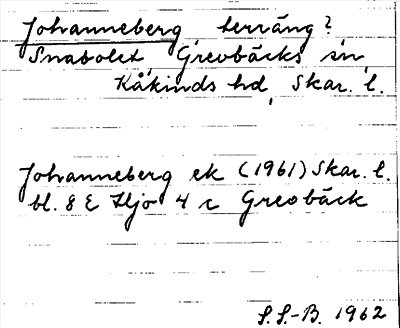 Johanneberg terräng?
Snabolet Grevbäcks sn,
Kåkinds hd, Skar. l.
Johanneberg ek (1961) Skar. l.
bl. 8 E Hjo 4 c Grevbäck
S.S-B. 1962